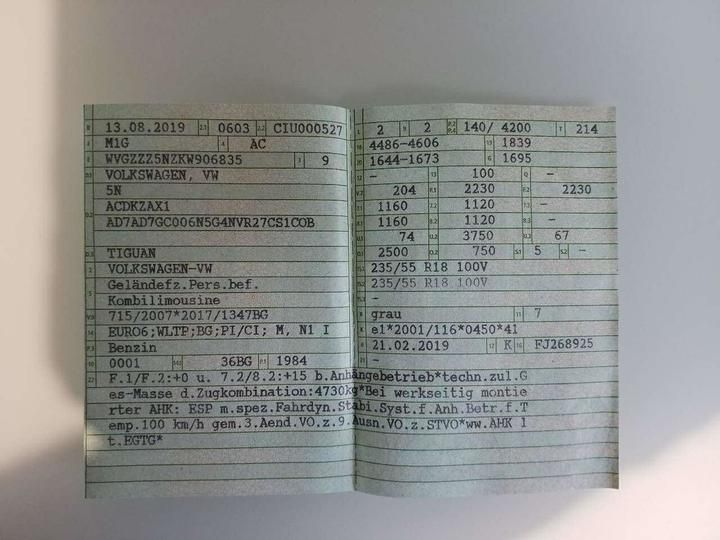 B 13.08.2019 2.1 0603 2.2 CIU000527
J M1G 4 AC
E WVGZZZ5NZKW906835 3 9
D.1 VOLKSWAGEN, VW
5N
D.2 ACDKZAX1
AD7AD7GC006N5G4NVR27CS1COB
D.3 TIGUAN
2 VOLKSWAGEN-VW
5 Geländefz.Pers.bef.
Kombilimousine
V.9 715/2007*2017/1347BG
14 EURO6;WLTP;BG;PI/CI; M, N1 I
P.3 Benzin
10 0001 14.1 36BG P.1 1984
L 2 9 2 P.2 P.4 140/ 4200 T 214
18 4486-4606 19 1839
20 1644-1673 G 1695
12 - 13 100 Q -
V.7 204 F.1 2230 F.2 2230
7.1 1160 7.2 1120 7.3 -
8.1 1160 8.2 1120 8.3 -
U.1 74 U.2 3750 U.3 67
O.1 2500 O.2 750 S.1 5 S.2 -
15.1 235/55 R18 100V
15.2 235/55 R18 100V
15.3 -
R grau 11 7
K e1*2001/116*0450*41
6 21.02.2019 17 K 16 FJ268925
21 -
22 F.1/F.2:+0 u. 7.2/8.2:+15 b.Anhängebetrieb*techn.zul.G
es-Masse d.Zugkombination:4730kg*Bei werkseitig montie
rter AHK: ESP m.spez.Fahrdyn.Stabi.Syst.f.Anh.Betr.f.T
emp.100 km/h gem.3.Aend.VO.z.9.Ausn.VO.z.STVO*ww.AHK l
t.EGTG*